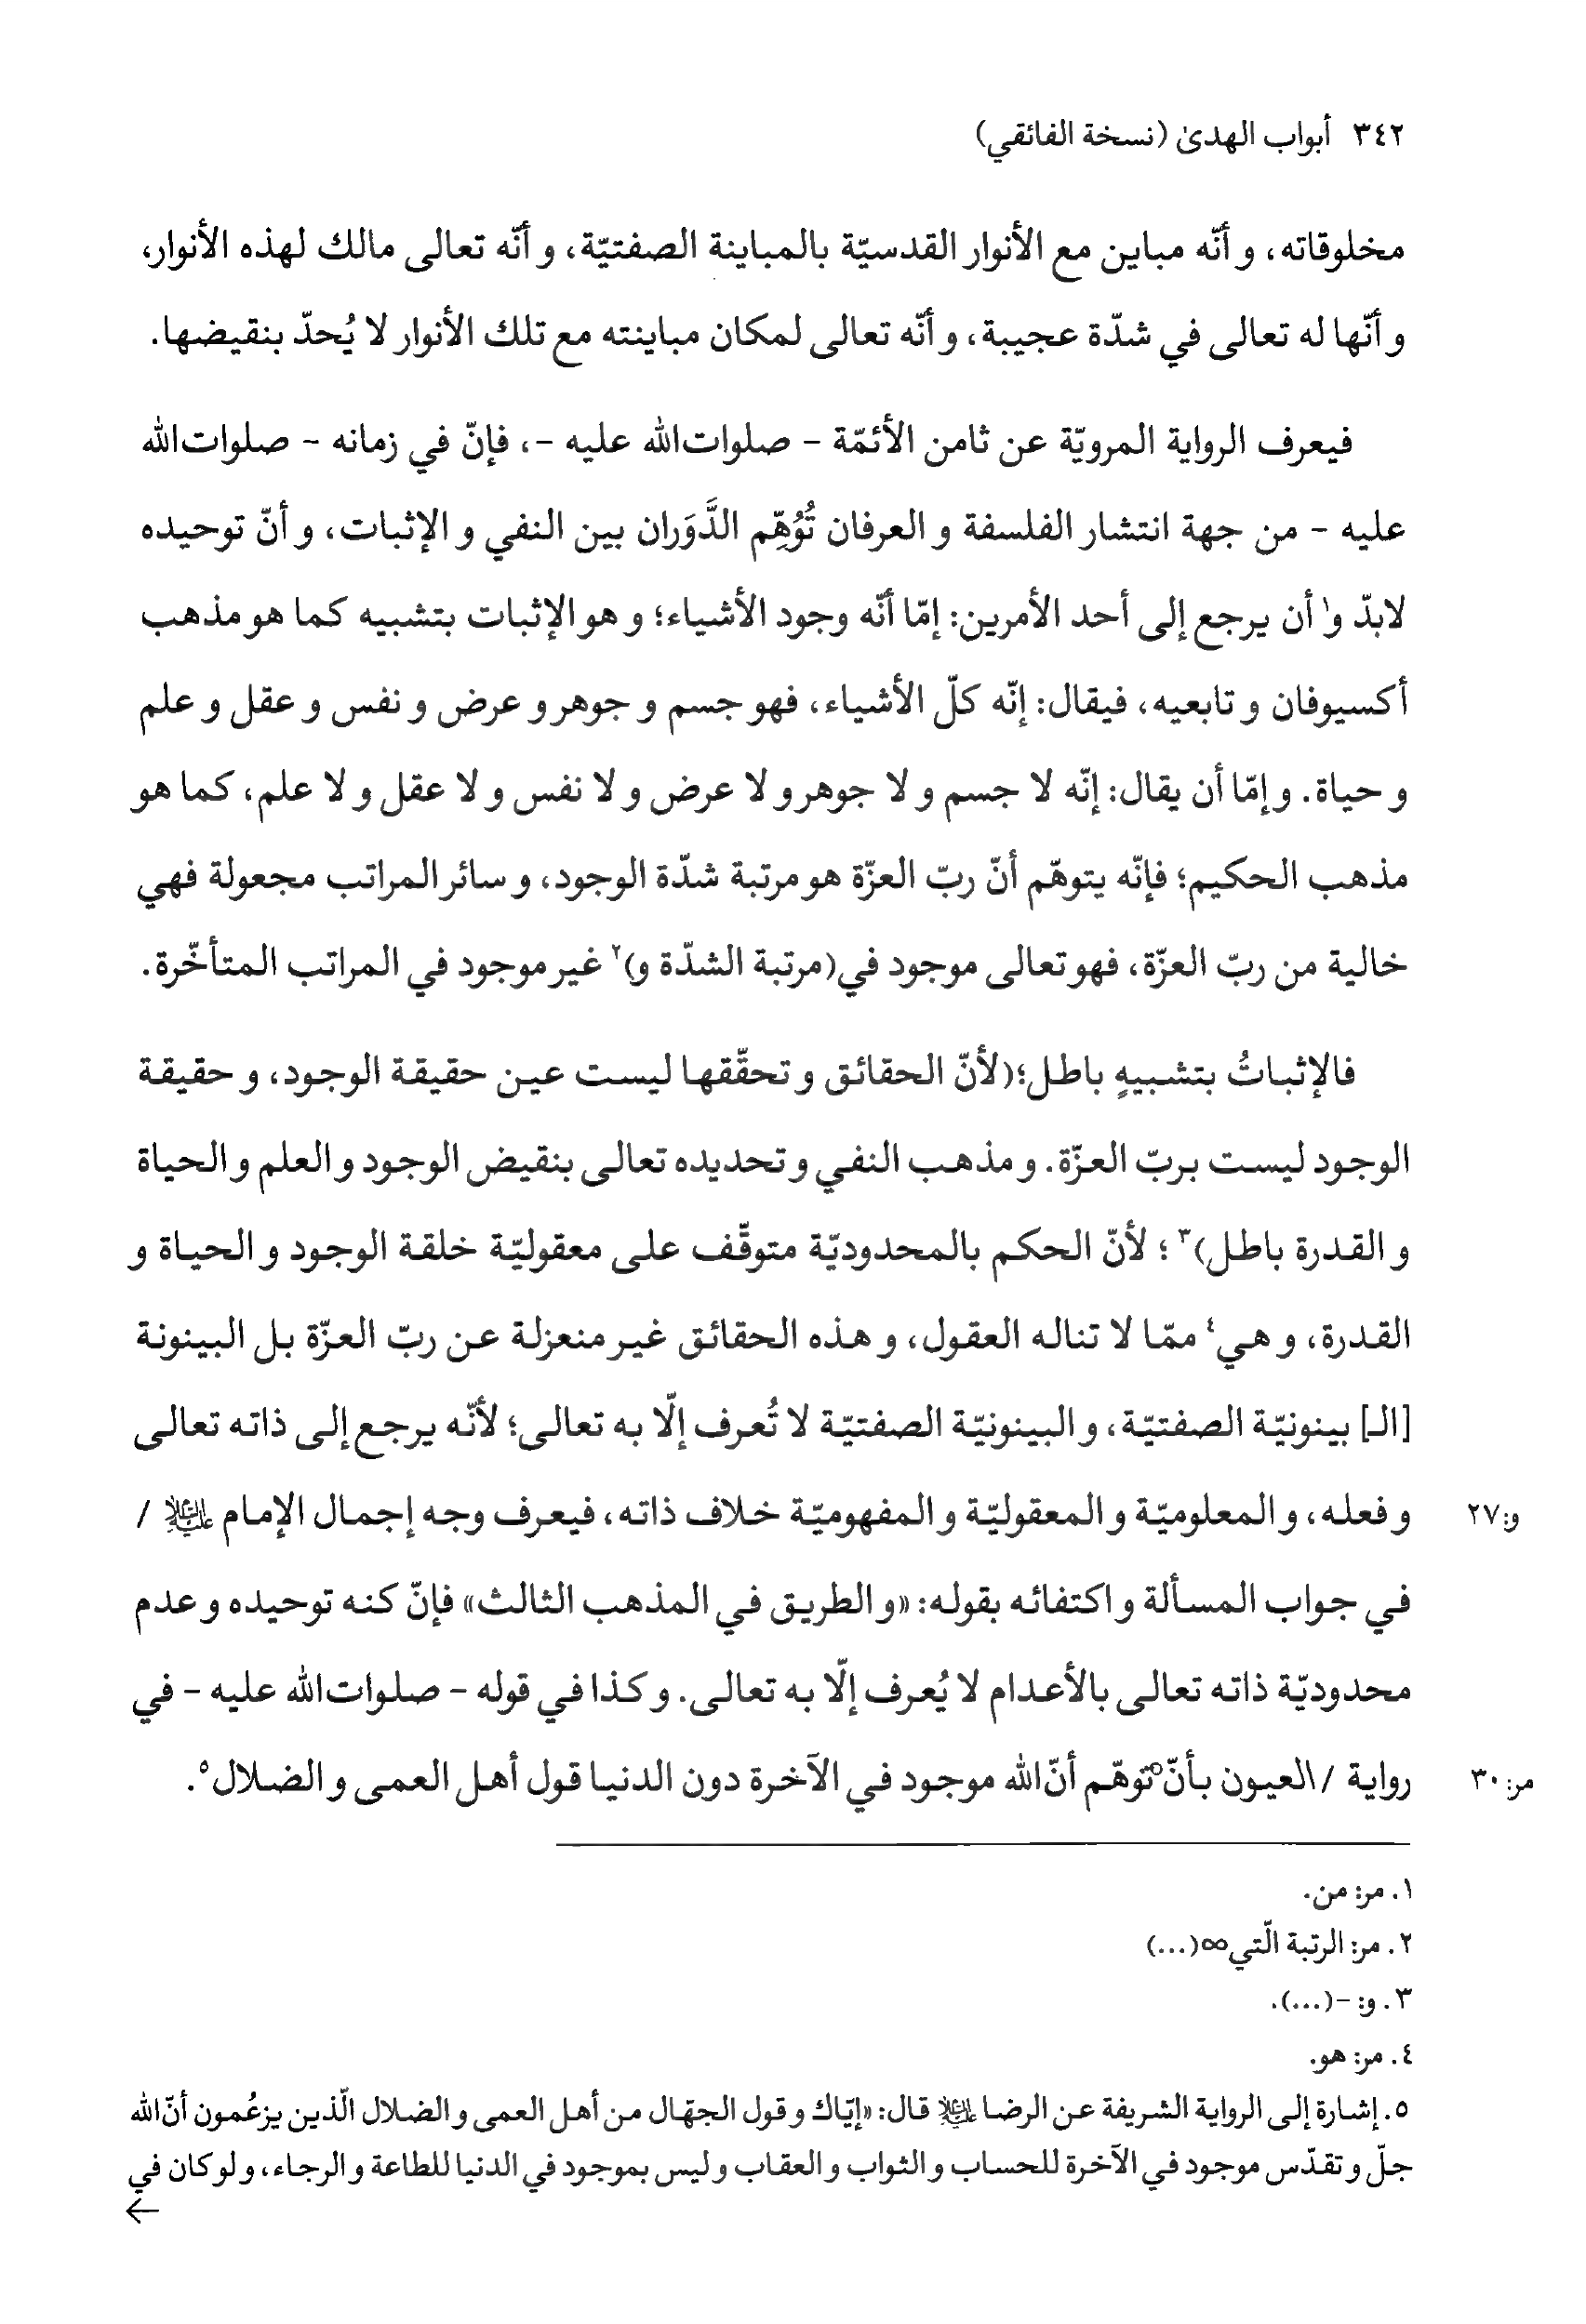 ٣٤٢ أبواب الهدىٰ (نسخة الفائقي)
مخلوقاته، و أنّه مباين مع الأنوار القدسيّة بالمباينة الصفتيّة، و أنّه تعالى مالك لهذه الأنوار،
و أنّها له تعالى في شدّة عجيبة، و أنّه تعالى لمكان مباينته مع تلك الأنوار لا يُحدّ بنقيضها.
فيعرف الرواية المرويّة عن ثامن الأئمّة - صلوات‌الله عليه -، فإنّ في زمانه - صلوات‌الله
عليه - من جهة انتشار الفلسفة و العرفان تُوُهِّم الدَّوَران بين النفي و الإثبات، و أنّ توحيده
لابدّ و١ أن يرجع إلى أحد الأمرين: إمّا أنّه وجود الأشياء؛ و هو الإثبات بتشبيه كما هو مذهب
أكسيوفان و تابعيه، فيقال: إنّه كلّ الأشياء، فهو جسم و جوهر و عرض و نفس و عقل و علم
و حياة. و إمّا أن يقال: إنّه لا جسم و لا جوهر و لا عرض و لا نفس و لا عقل و لا علم، كما هو
مذهب الحكيم؛ فإنّه يتوهّم أنّ ربّ العزّة هو مرتبة شدّة الوجود، و سائر المراتب مجعولة فهي
خالية من ربّ العزّة، فهو تعالى موجود في(مرتبة الشدّة و)٢ غير موجود في المراتب المتأخّرة.
فالإثباتُ بتشبيهٍ باطل؛(لأنّ الحقائق و تحقّقها ليست عين حقيقة الوجود، و حقيقة
الوجود ليست بربّ العزّة. و مذهب النفي و تحديده تعالى بنقيض الوجود و العلم و الحياة
و القدرة باطل)٣ ؛ لأنّ الحكم بالمحدوديّة متوقّف على معقوليّة خلقة الوجود و الحياة و
القدرة، و هي٤ ممّا لا تناله العقول، و هذه الحقائق غير منعزلة عن ربّ العزّة بل البينونة
[الـ] بينونيّة الصفتيّة، و البينونيّة الصفتيّة لا تُعرف إلّا به تعالى؛ لأنّه يرجع إلى ذاته تعالى
و فعله، و المعلوميّة و المعقوليّة و المفهوميّة خلاف ذاته، فيعرف وجه إجمال الإمام عليه‌السلام / و:٢٧
في جواب المسألة و اكتفائه بقوله: «و الطريق في المذهب الثالث» فإنّ كنه توحيده و عدم
محدوديّة ذاته تعالى بالأعدام لا يُعرف إلّا به تعالى. و كذا في قوله - صلوات‌الله عليه - في
رواية / العيون بأنّ °توهّم أنّ‌الله موجود في الآخرة دون الدنيا قول أهل العمى و الضلال٥. مر: ٣٠
١. مر: من.
٢. مر: الرتبة الّتي∞(...)
٣. و: -(...).
٤. مر: هو.
٥. إشارة إلى الرواية الشريفة عن الرضا عليه‌السلام قال: «إيّاك و قول الجهّال من أهل العمى و الضلال الّذين يزعُمون أنّ‌الله
جلّ و تقدّس موجود في الآخرة للحساب و الثواب و العقاب و ليس بموجود في الدنيا للطاعة و الرجاء، و لو كان في
←